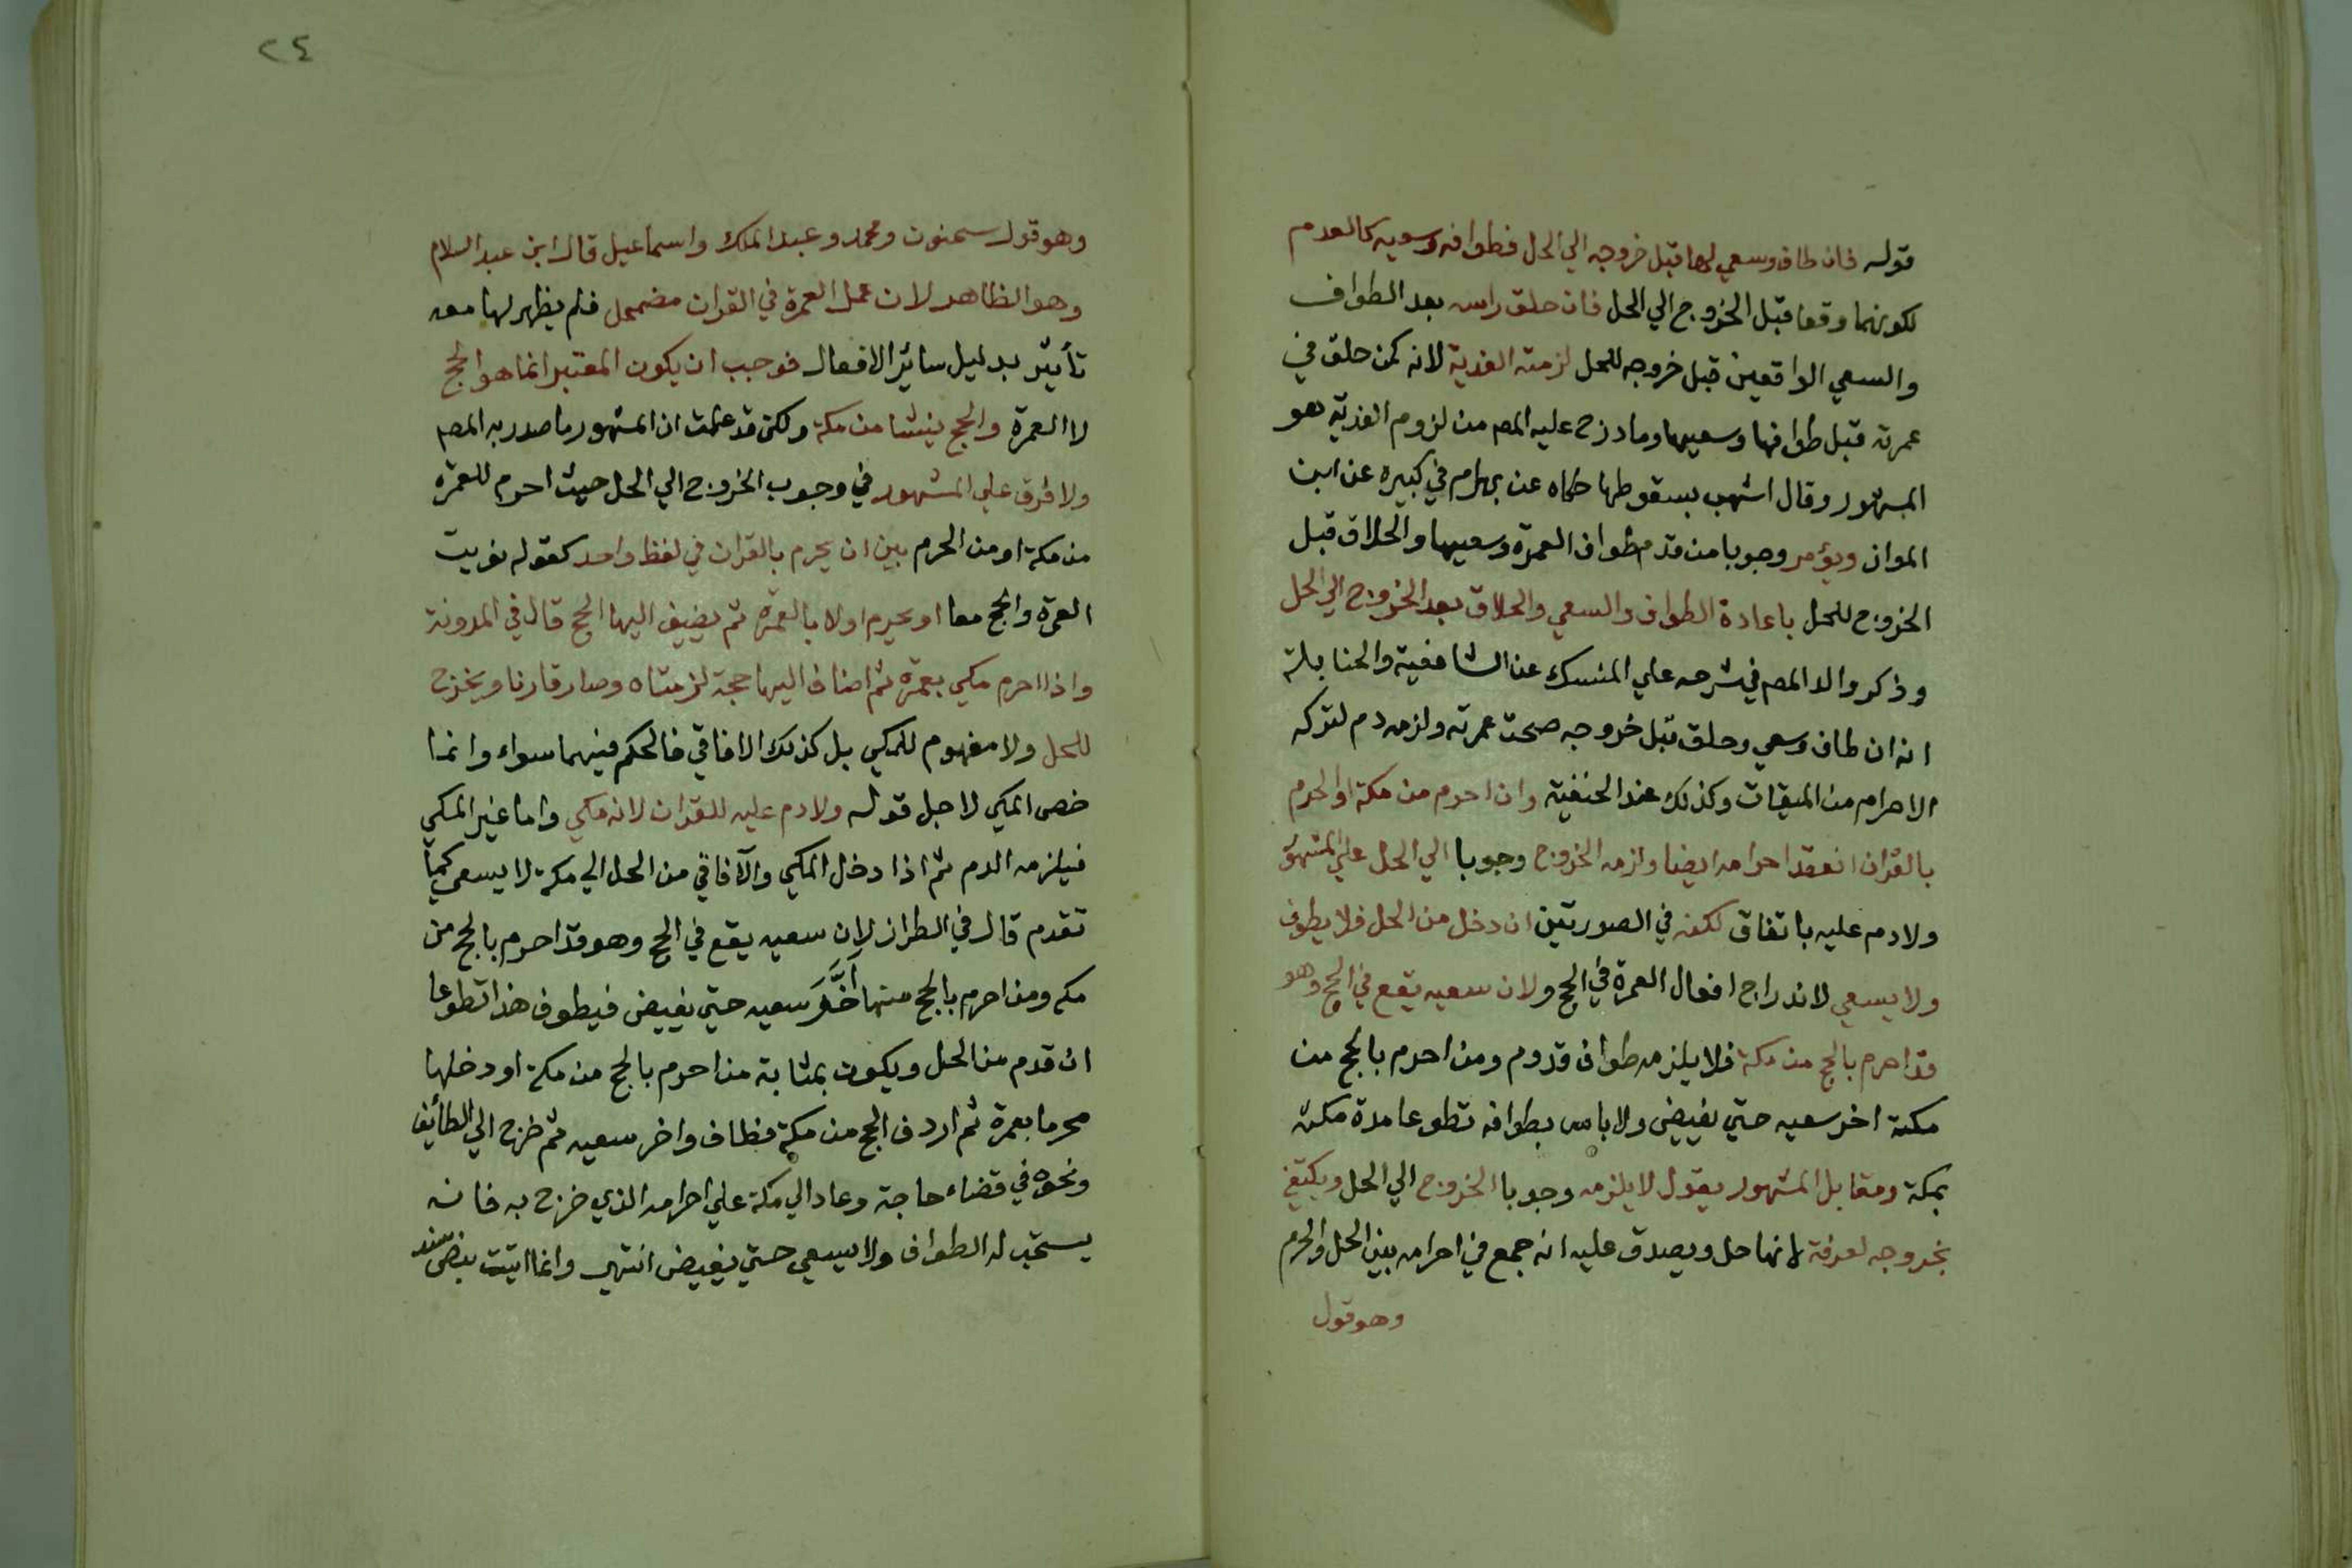 قوله فان طاف وسعي لها قبل خروجه الي الحل فطوافه وسعيه كالعدم
لكونهما وقعا قبل الخروج الي الحل فان حلق راسه بعد الطواف
والسعي الواقعين قبل خروجه للحل لزمته الفدية لانه كمن حلق في
عمرته قبل طوافها وسعيها وما درج عليه المص من لزوم الفدية هو
المشهور وقال اشهب بسقوطها حكاه عن بهرام في كبيره عن ابن
المواز ويؤمر وجوبا من قدم طواف العمرة وسعيها والحلاق قبل
الخروج للحل باعادة الطواف والسعي والحلاق بعد الخروج الي الحل
وذكر والد المص في شرحه علي المنسك عن الشافعية والحنابلة
انه ان طاف وسعي وحلق قبل خروجه صحت عمرته ولزمه دم لتركه
الاحرام من الميقات وكذلك عند الحنفية وان احرم من مكة او الحرم
بالقران انعقد احرامه ايضا ولزمه الخروج وجوبا الي الحل علي المشهور
ولا دم عليه باتفاق لكنه في الصورتين ان دخل من الحل فلا يطوف
ولا يسعي لاندراج افعال العمرة في الحج ولان سعيه يقع في الحج وهو
قد احرم بالحج من مكة فلا يلزمه طواف قدوم ومن احرم بالحج من
مكة اخر سعيه حتي يفيض ولا باس بطوافه تطوعا مدة مكثه
بمكة ومقابل المشهور يقول لا يلزمه وجوبا الخروج الي الحل ويكتفي
بخروجه لعرفة لانها حل ويصدق عليه انه جمع في احرامه بين الحل والحرم
وهو قول
٢٤
وهو قول سحنون ومحمد وعبد الملك واسماعيل قال ابن عبد السلام
وهو الظاهر لان عمل العمرة في القران مضمحل فلم يظهر لها معه
تأثير بدليل سائر الافعال فوجب ان يكون المعتبر انما هو الحج
لا العمرة والحج ينشا من مكة ولكن قد علمت ان المشهور ما صدر به المص
ولا فرق علي المشهور في وجوب الخروج الي الحل حيث احرم للعمرة
من مكة او من الحرم بين ان يحرم بالقران في لفظ واحد كقوله نويت
العمرة والحج معا او يحرم اولا بالعمرة ثم يضيف اليها الحج قال في المدونة
واذا احرم مكي بعمرة ثم اضاف اليها حجة لزمتاه وصار قارنا ويخرج
للحل ولا مفهوم للمكي بل كذلك الافاقي فالحكم فيهما سواء وانما
خص المكي لاجل قوله ولا دم عليه للقران لانه مكي واما غير المكي
فيلزمه الدم ثم اذا دخل المكي والآفاقي من الحل الي مكة لا يسعي كما
تقدم قال في الطراز لان سعيه يقع في الحج وهو قد احرم بالحج من
مكة ومن احرم بالحج منها أخَّرَ سعيه حتي يفيض فيطوف هذا تطوعا
ان قدم من الحل ويكون بمثابة من احرم بالحج من مكة او دخلها
محرما بعمرة ثم اردف الحج من مكة فطاف واخر سعيه ثم خرج الي الطائف
ونحوه في قضاء حاجة وعاد الي مكة علي احرامه الذي خرج به فانه
يستحب له الطواف ولا يسعي حتي يفيض انتهي وانما اتيت بنص سند